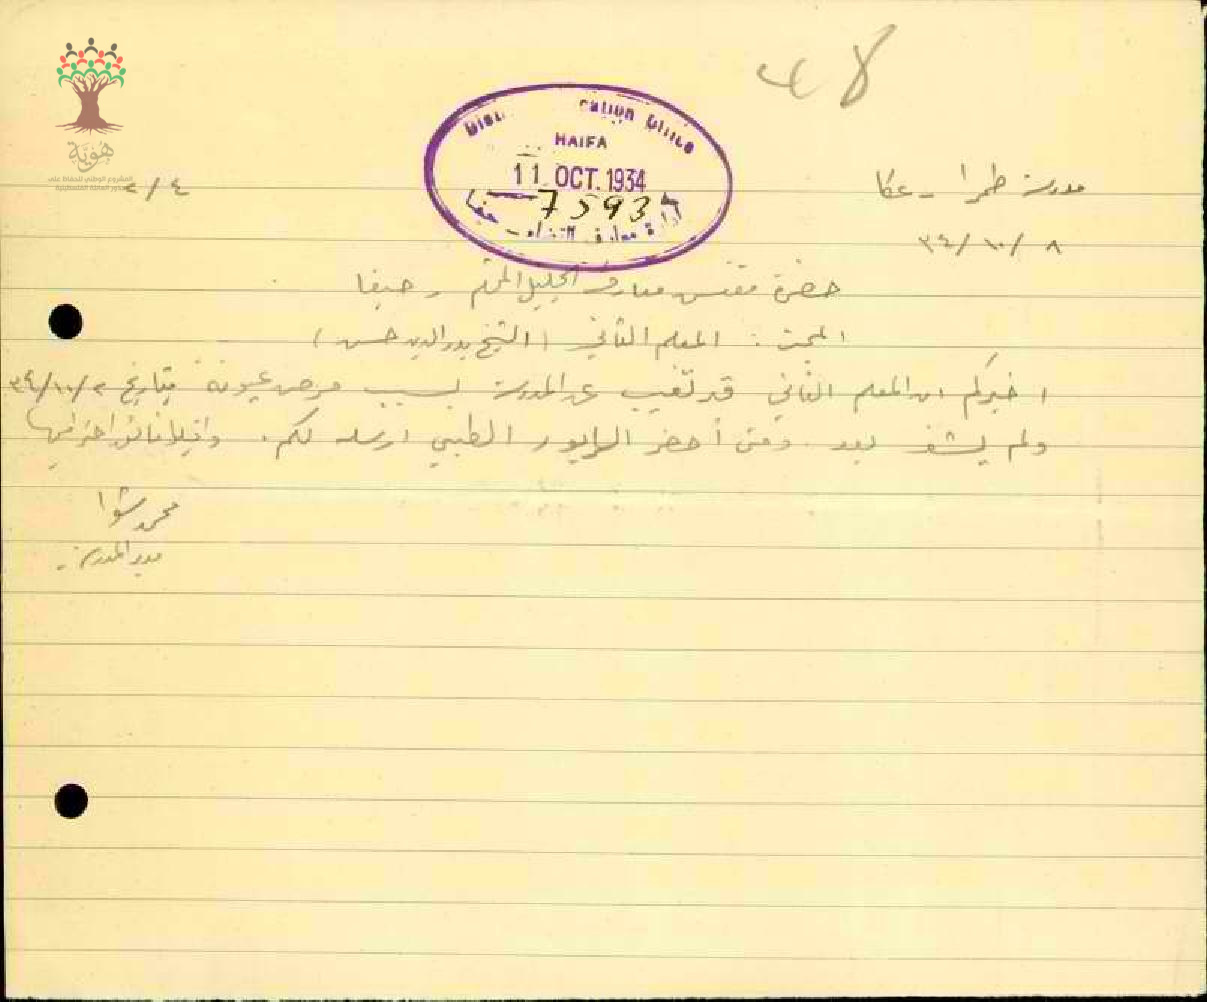 ٤٨
District Education Office
HAIFA
11 OCT. 1934
7593
إدارة معارف اللواء - حيفا
هوية
المشروع الوطني للحفاظ على
جذور العائلة الفلسطينية
مدرسة طمرا - عكا
٤/٢
٨/١٠/٣٤
حضرة مفتش معارف الجليل المحترم - حيفا
المبحث: المعلم الثاني (الشيخ بدر الدين حسن)
اخبركم ان المعلم الثاني قد تغيب عن المدرسة بسبب مرض عيونه بتاريخ ٢/١٠/٣٤
ولم يشف بعد. ومتى أحضر الرابور الطبي ارسله لكم. واقبلوا فائق احترامي
محمد شوا
مدير المدرسة -